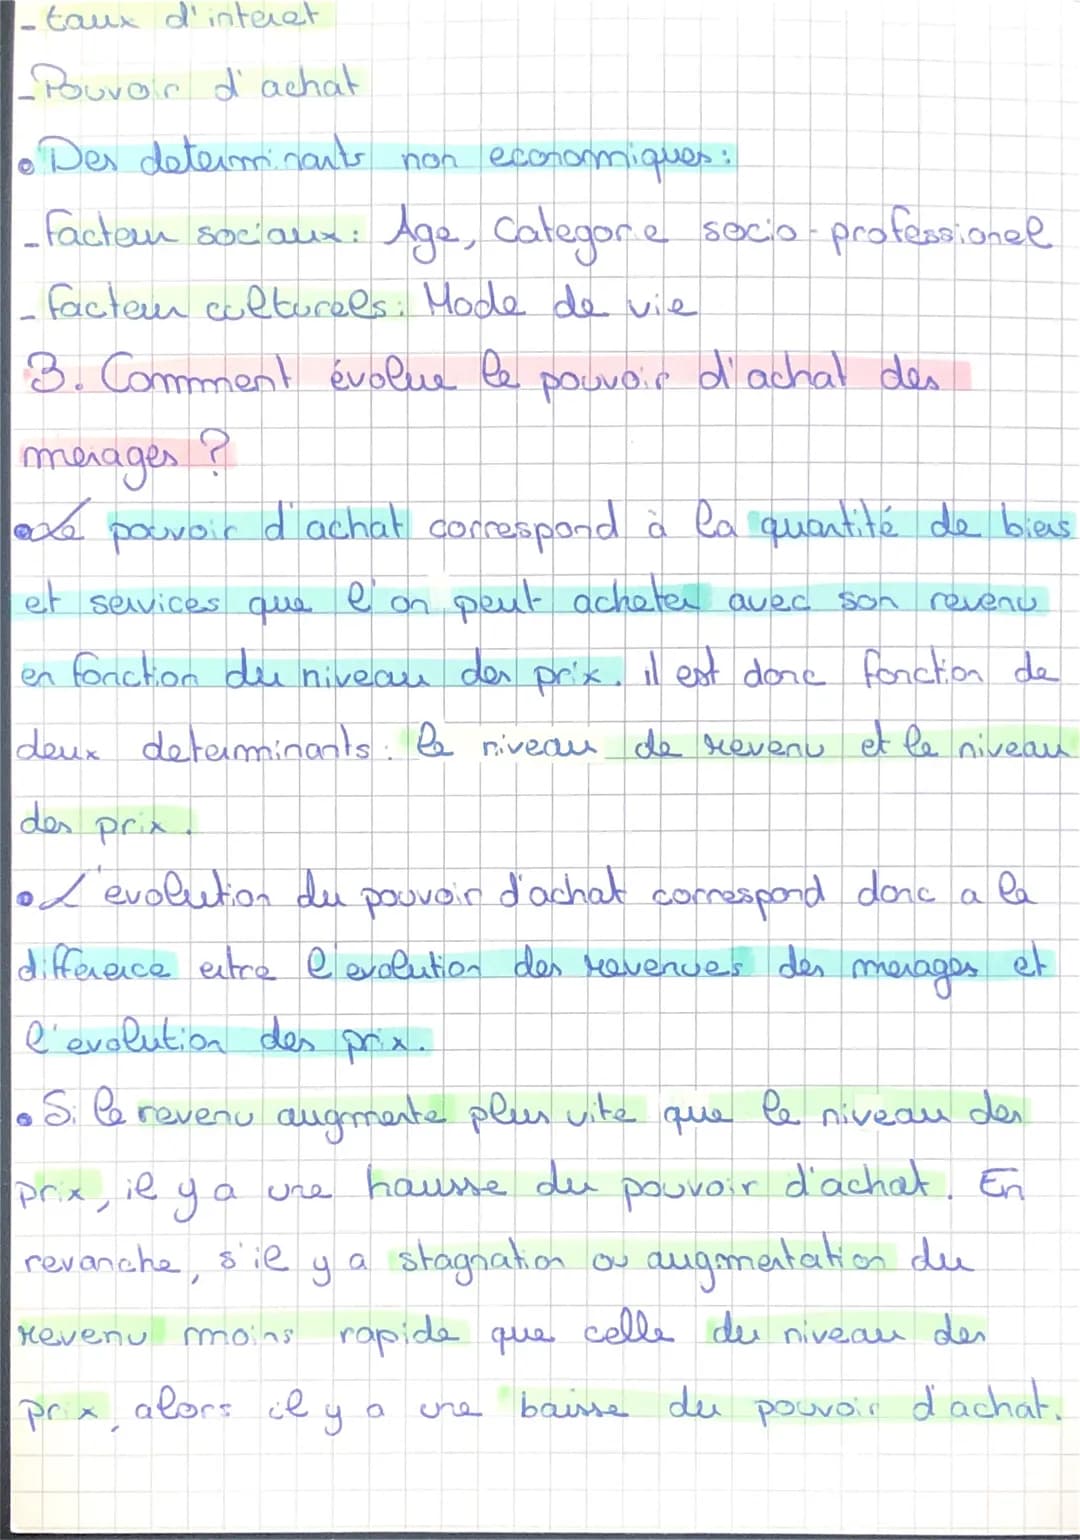 - taux d'interet
- Pouvoir d'achat
• Des determinants non economiques :
- facteur sociaux : Age, Categorie socio-professionel
- facteur culturels : Mode de vie
3. Comment évolue le pouvoir d'achat des
menages ?
• Le pouvoir d'achat correspond à la quantité de biens
et services que l'on peut acheter avec son revenu
en fonction du niveau des prix. il est donc fonction de
deux determinants : le niveau de revenu et le niveau
des prix.
• L'evolution du pouvoir d'achat correspond donc a la
difference entre l'evolution des revenues des menages et
l'evolution des prix.
• Si le revenu augmente plus vite que le niveau des
prix, il y a une hausse du pouvoir d'achat. En
revanche, s'il y a stagnation ou augmentation du
revenu moins rapide que celle du niveau des
prix, alors il y a une baisse du pouvoir d'achat.